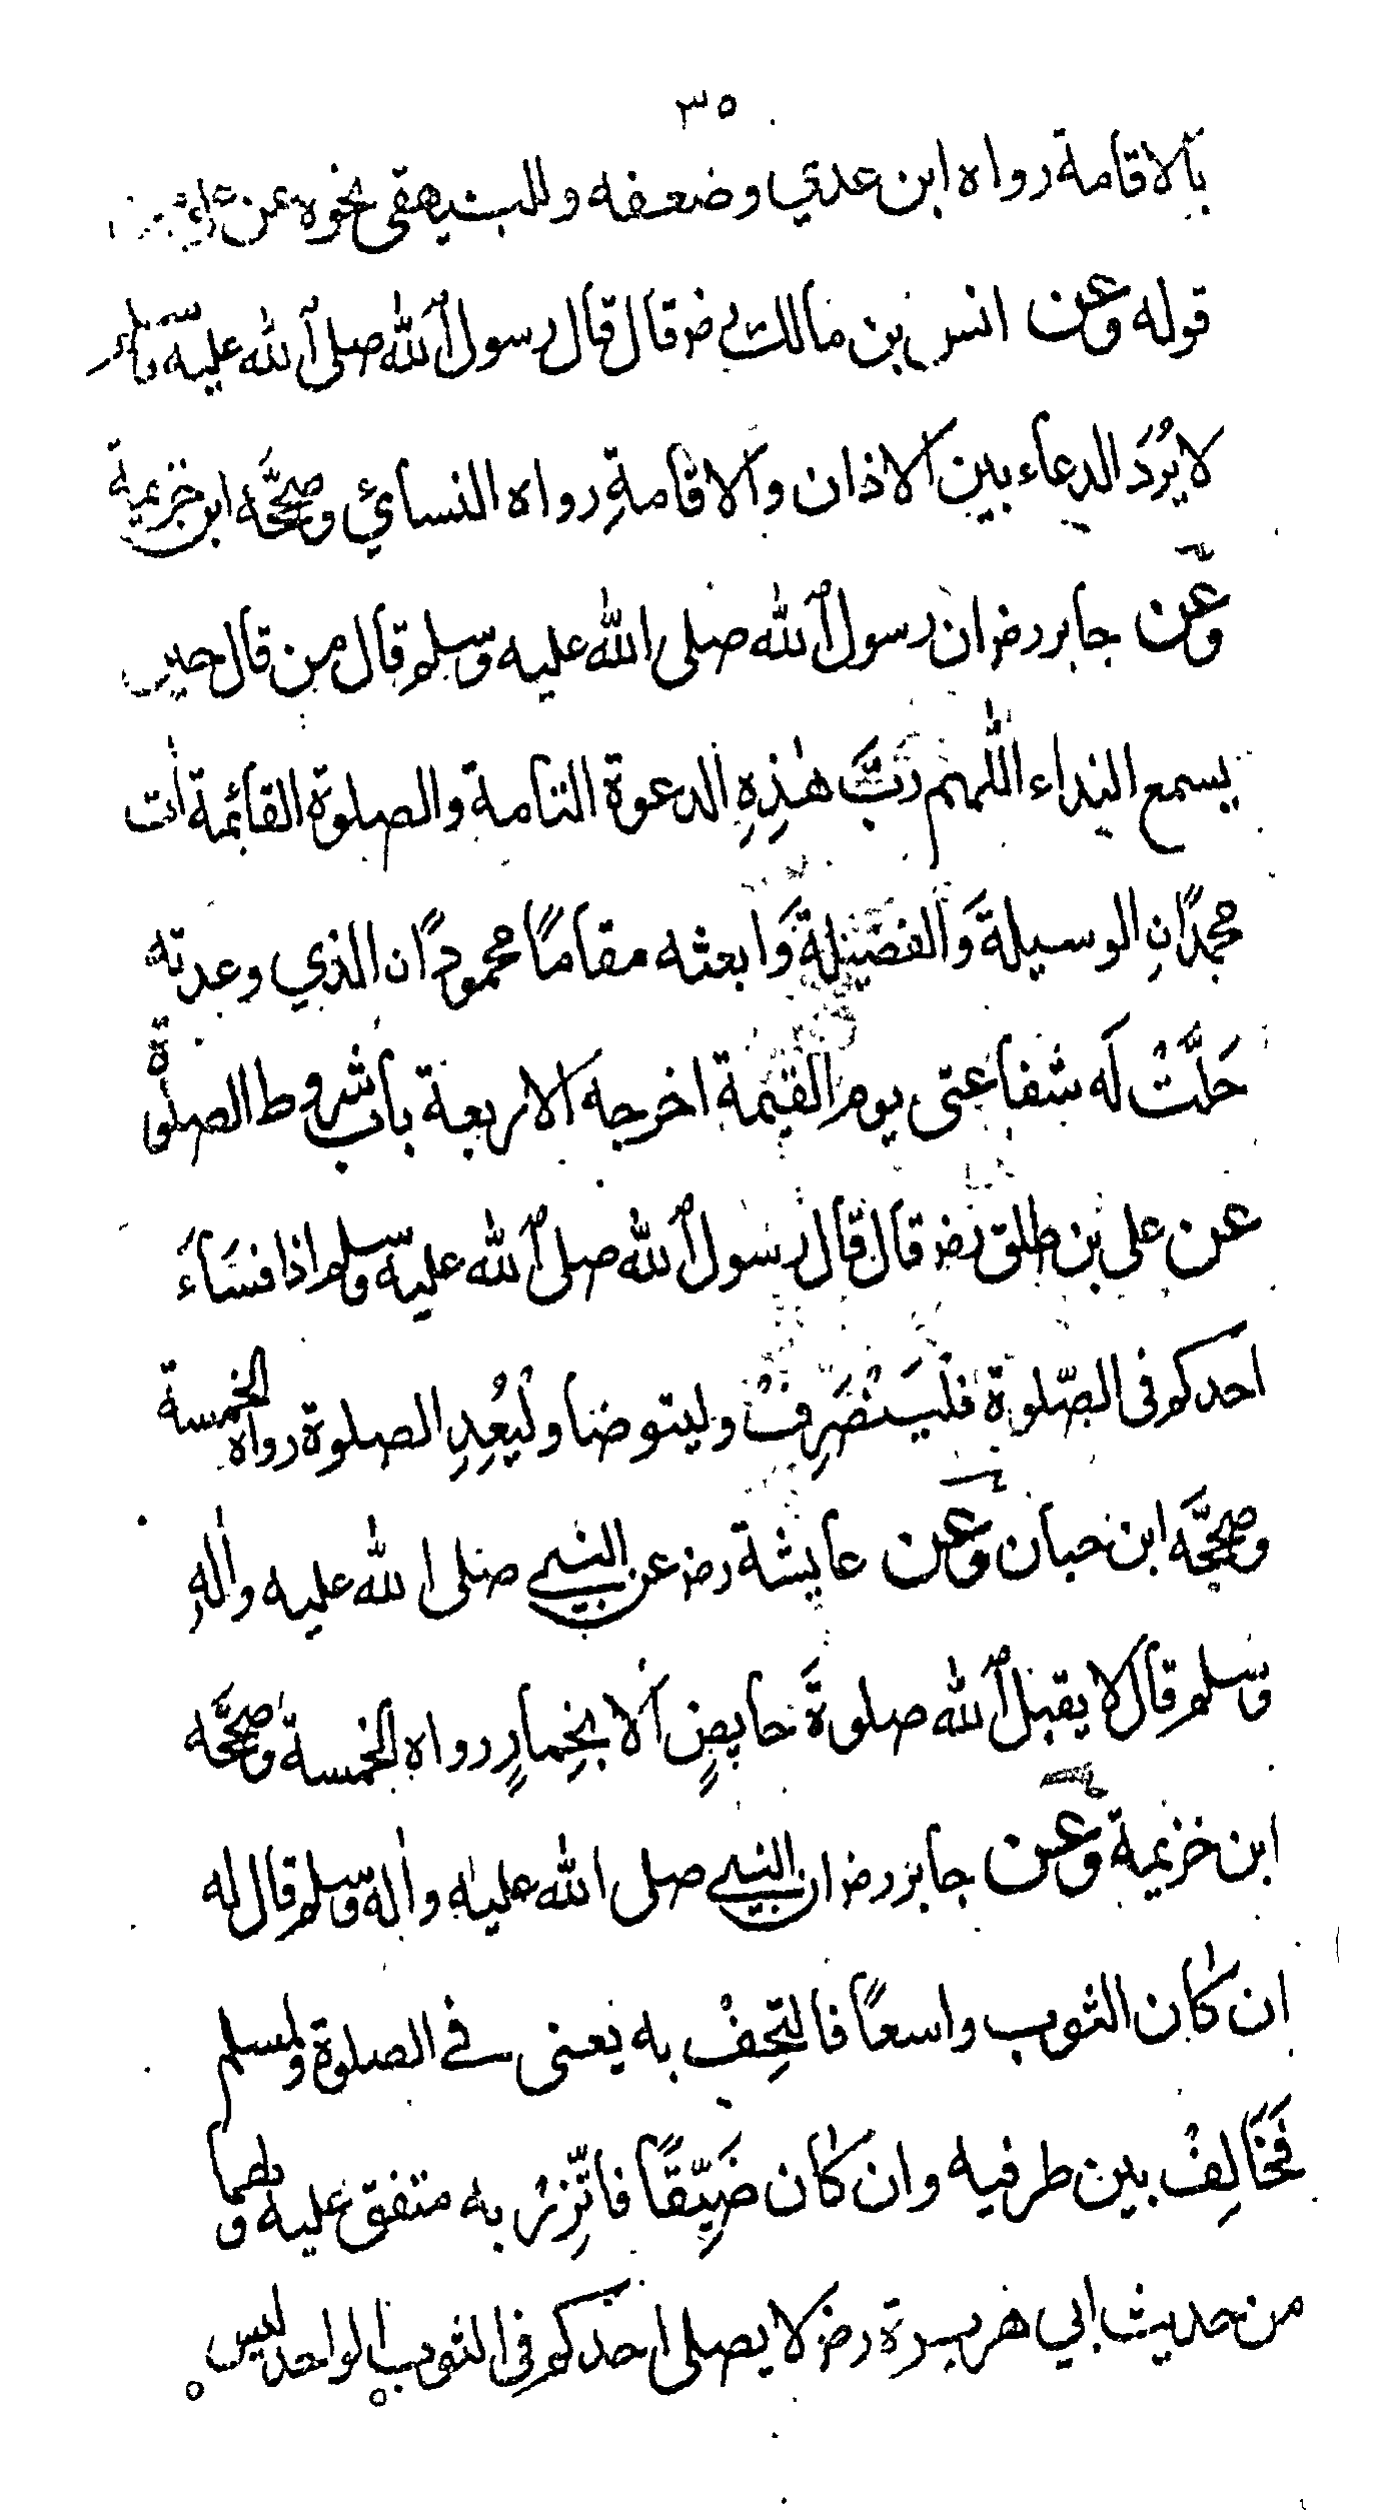 ٣٥
بالاقامة رواه ابن عدي وضعفه وللبيهقى نحوه عن على من
قوله وعن انس بن مالك رض قال قال رسول الله صلى الله عليه وسلم
لا يُرَدُّ الدعاء بين الاذان والاقامةِ رواه النسائي وصحَّحه ابن خزيمة
وعن جابر رض ان رسول الله صلى الله عليه وسلم قال من قال حين
يسمع النداء اللهم ربَّ هٰذِهِ الدعوة التامة والصلوة القائمة اٰت
محمدًانِ الوسيلةَ والفضيلةَ وَابعثه مقامًا محمودًان الذي وعدته
حَلَّتْ لَه شفاعتى يوم القيٰمة اخرجه الاربعة باب شروط الصلوة
عن على بن طلق رض قال قال رسول الله صلى الله عليه وسلم اذا فسَاءَ
احدكم فى الصّلوة فليَنْصَرِفْ وليتوضا ولْيُعِدِ الصلوة رواه الخمسة
وصحَّحَه ابن حبان وعن عايشة رض عن النبي صلى الله عليه واٰلهٖ
وسلم قال لا يقبل الله صلوةَ حايضٍ الا بخِمارٍ رواه الخمسة وصحَّحه
ابن خزيمة وعن جابر رض ان النبي صلى الله عليه واٰله وسلم قال له
ان كان الثوب واسعًا فالتحِفْ به يعنى في الصلوة ولمسلم
فَخَالِفْ بين طرفيه وان كان ضَيِّقًا فاتّزِرْ به متفق عليه ولهما
من حديث ابي هريرة رض لا يصلى احدكم فى الثوب الواحد ليس